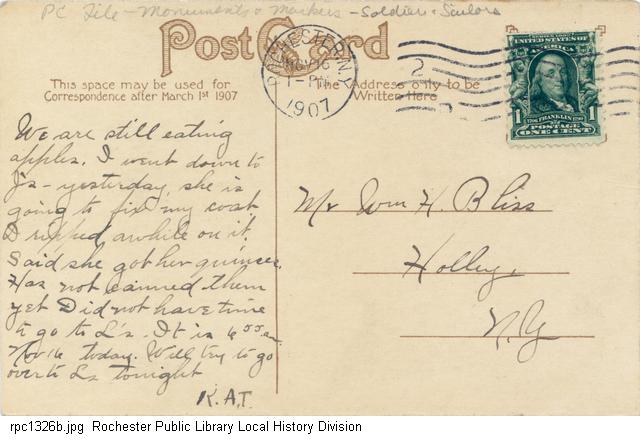 PC File - Monuments & Markers - Soldiers & Sailors
Post Card
This space may be used for
Correspondence after March 1st 1907
The Address only to be
Written Here
ROCHESTER, N.Y.
NOV 16
1-PM
1907
2
SERIES 1902
UNITED STATES OF
AMERICA
1706 FRANKLIN 1790
1 POSTAGE 1
ONE CENT
We are still eating
apples. I went down to
J's - yesterday, she is
going to fix my coat
I ripped awhile on it.
Said she got her quinces.
Has not canned them
yet Did not have time
to go to L's. It is 6 00 am
Nov 16 today. Will try to go
over to Ls tonight
K.A.T.
Mr Wm H. Bliss
Holley,
N.Y
rpc1326b.jpg Rochester Public Library Local History Division